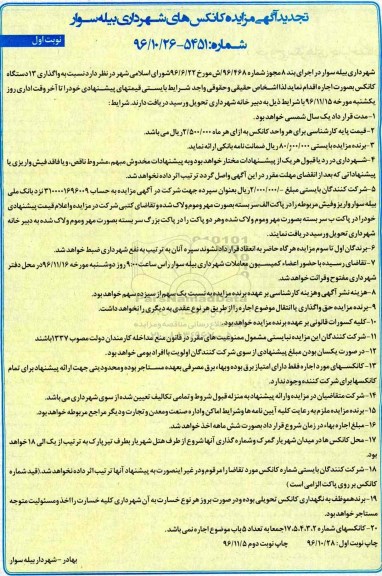 تجدید آگهی مزایده کانکس های شهرداری بیله سوار
نوبت اول
شماره: ۵۴۵۱-۹۶/۱۰/۲۶
شهرداری بیله سوار در اجرای بند ۸ مجوز شماره ۹۶/۴۶۸/ش مورخ ۹۶/۶/۲۲ شورای اسلامی شهر در نظر دارد نسبت به واگذاری ۱۳ دستگاه
کانکس بصورت اجاره اقدام نماید لذا اشخاص حقیقی و حقوقی واجد شرایط بایستی قیمتهای پیشنهادی خود را تا آخر وقت اداری روز
یکشنبه مورخه ۹۶/۱۱/۱۵ با شرایط ذیل به دبیر خانه شهرداری تحویل و رسید دریافت دارند. شرایط:
۱- مدت قرار داد یک سال شمسی خواهد بود.
۲- قیمت پایه کارشناسی برای هر واحد کانکس به ازای هر ماه ۲/۵۰۰/۰۰۰ ریال می باشد.
۳- برنده مزایده بایستی ۸۰/۰۰۰/۰۰۰ ریال ضمانت نامه بانکی ارائه نماید.
۴- شهرداری در رد یا قبول هر یک از پیشنهادات مختار خواهد بود و به پیشنهادات مخدوش مبهم، مشروط ناقص، و یا فاقد فیش واریزی یا
پیشنهاداتی که بعد از انقضای مهلت مقرر در این آگهی واصل گردد ترتیب اثر داده نخواهد شد.
۵- شرکت کنندگان بایستی مبلغ ۲/۰۰۰/۰۰۰ ریال بعنوان سپرده جهت شرکت در آگهی مزایده به حساب ۳۱۰۰۰۰۱۶۹۶۰۰۹ نزد بانک ملی
بیله سوار واریز و فیش مربوطه را در پاکت الف سر بسته بصورت مهر و موم و لاک شده و تقاضای کتبی شرکت در مزایده و اعلام قیمت پیشنهادی
خود را در پاکت ب سر بسته بصورت مهر و موم و لاک شده و هر دو پاکت را در پاکت بزرگ سر بسته بصورت مهر و موم ولاک شده به دبیر خانه
شهرداری تحویل و رسید دریافت نمایند.
۶- برندگان اول تا سوم مزایده هر گاه حاضر به انعقاد قرار داد نشوند سپرده آنان به ترتیب به نفع شهرداری ضبط خواهد شد.
۷- تقاضای رسیده با حضور اعضاء کمیسیون معاملات شهرداری بیله سوار راس ساعت ۹:۰۰ روز دوشنبه مورخه ۹۶/۱۱/۱۶ در محل دفتر
شهرداری مفتوح و قرائت خواهد شد.
۸- هزینه نشر آگهی و هزینه کارشناسی بر عهده برنده مزایده به نسبت یک سهم از سیزده سهم خواهد بود.
۹- برنده مزایده حق واگذاری یا انتقال موضوع اجاره را از طریق هر نوع عقدی به دیگری را نخواهد داشت.
۱۰- کلیه کسورات قانونی بر عهده برنده مزایده خواهد بود.
۱۱- شرکت کنندگان این مزایده نبایستی مشمول ممنوعیت های مقرر در قانون منع مداخله کارمندان دولت مصوب ۱۳۳۷ باشند
۱۲- در صورت یکسان بودن مبلغ پیشنهادی از سوی شرکت کنندگان اولویت با افراد بومی خواهد بود.
۱۳- کانکسهای مورد اجاره فقط دارای امتیاز برق بوده و بهاء برق مصرفی بعهده مستاجر بوده و محدودیتی جهت ارائه پیشنهاد برای تمام
کانکسها برای شرکت کننده وجود ندارد.
۱۴- شرکت متقاضیان در مزایده و ارائه پیشنهاد به منزله قبول شروط و تمامی تکالیف تعیین شده از سوی شهرداری می باشد.
۱۵- برنده مزایده ملزم به رعایت کلیه آیین نامه ها و شرایط اماکن و اداره صنعت و معدن و تجارت و دیگر مراجع مربوطه خواهد بود.
۱۶- مبلغ اجاره بهاء در زمان شروع قرار داد بصورت شش ماهه اخذ خواهد شد.
۱۷- محل کانکس ها در میدان شهریار گمرک و شماره گذاری آنها شروع از طرف هتل شهریار بطرف تیر پارک به ترتیب از یک الی ۱۸ خواهد
بود.
۱۸- شرکت کنندگان بایستی شماره کانکس مورد تقاضا را مرقوم و در غیر اینصورت به پیشنهاد آنها ترتیب اثر داده نخواهد شد. (قید شماره
کانکس بر روی پاکت الزامی است)
۱۹- برنده موظف به نگهداری کانکس تحویلی بوده و در صورت بروز هر نوع خسارت به آن شهرداری کلیه خسارت را اخذ و مسئولیت متوجه
مستاجر خواهد بود.
۲۰- کانکسهای شماره ۱۷،۵،۴،۳،۲ جمعا به تعداد ۵ باب موضوع اجاره نمی باشد.
چاپ نوبت اول: ۹۶/۱۰/۲۸ چاپ نوبت دوم ۹۶/۱۱/۵
بهادر - شهردار بیله سوار